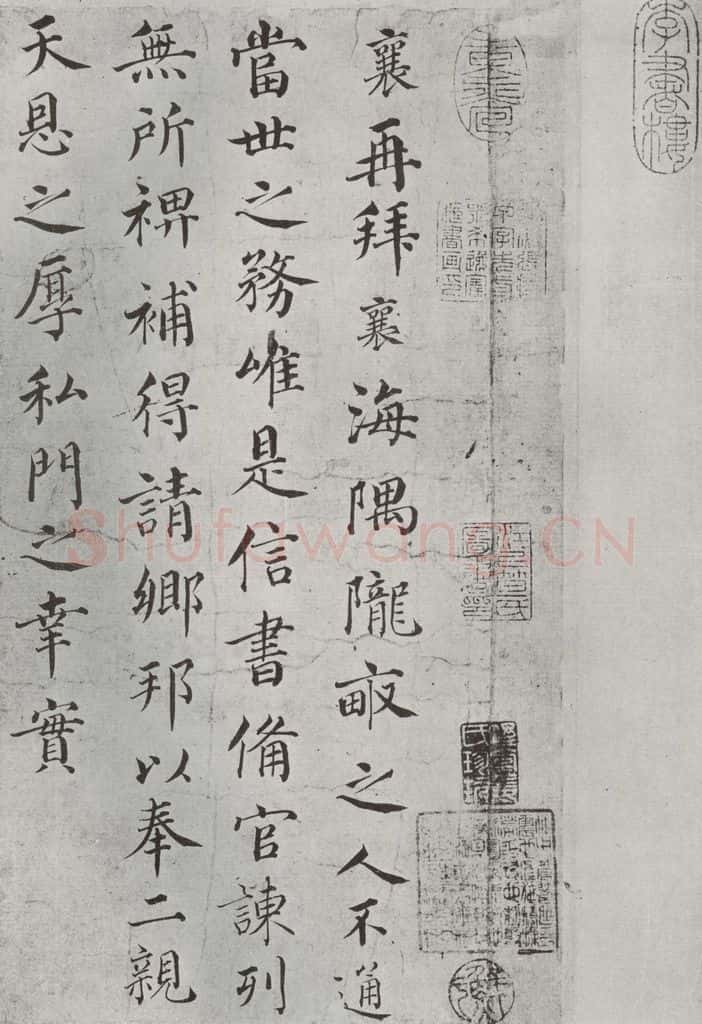 襄再拜襄海隅隴畝之人不通
當世之務唯是信書備官諫列
無所裨補得請鄉邦以奉二親
天恩之厚私門之幸實
Shufawang.CN